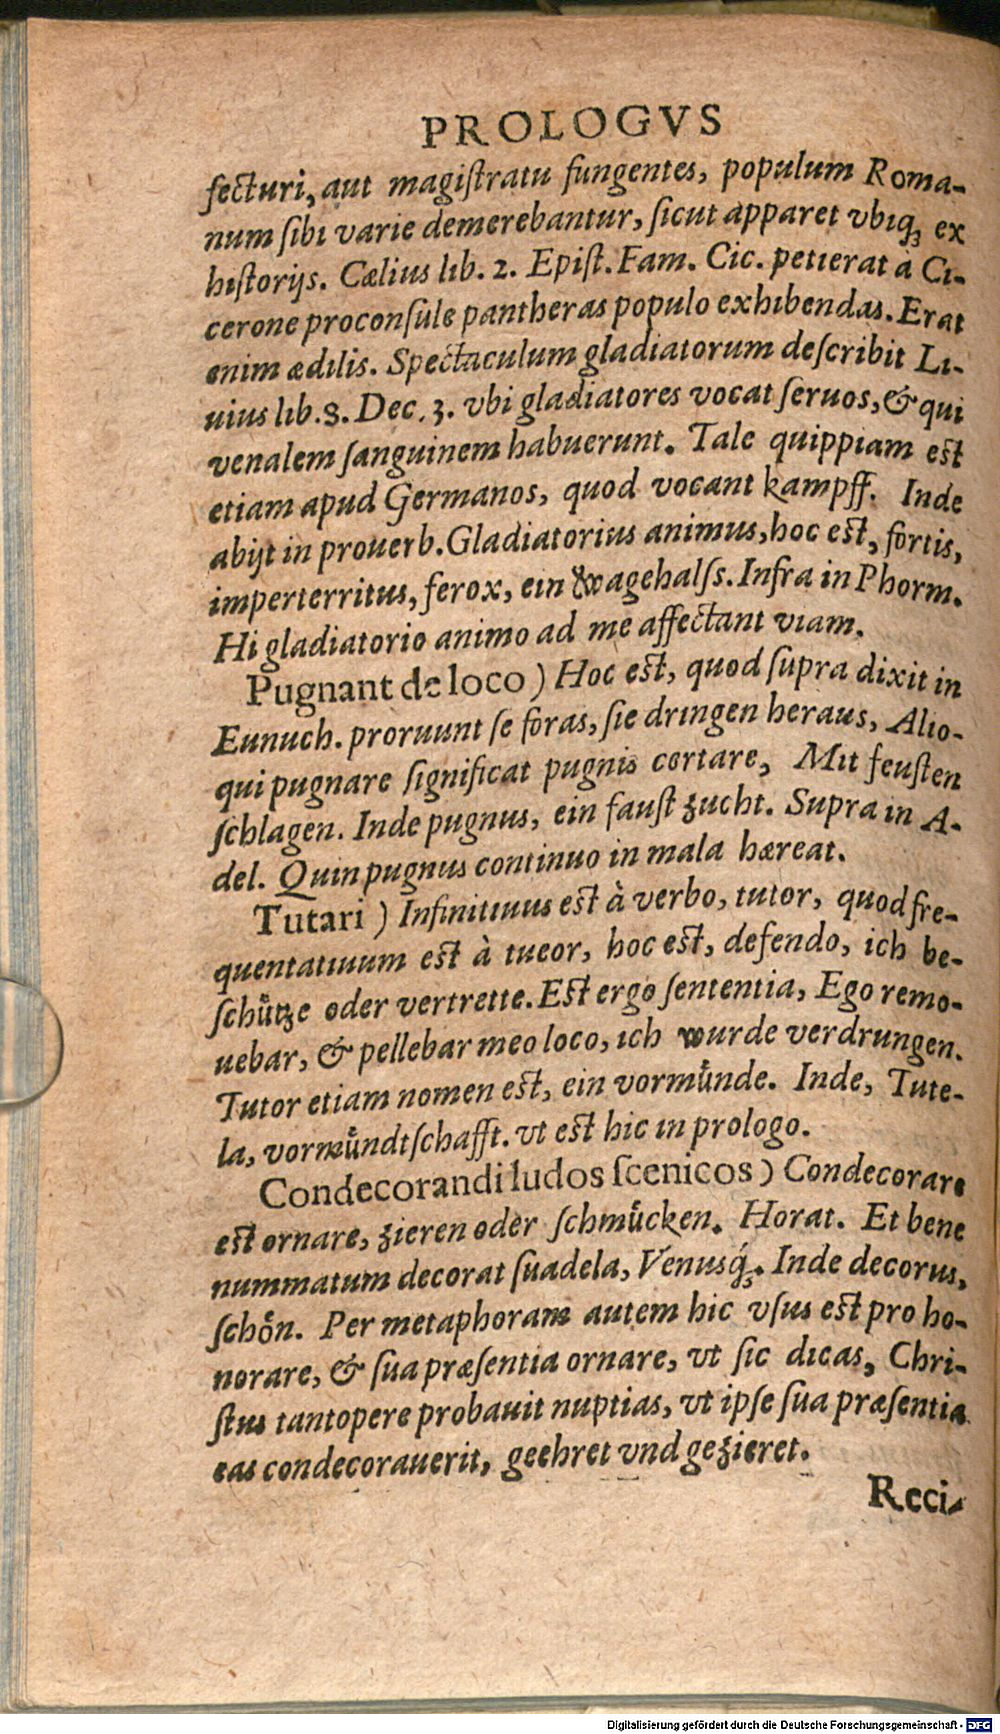 PROLOGVS
fecturi, aut magiſtratu fungentes, populum Roma-
num ſibi varie demerebantur, ſicut apparet vbiq́; ex
hiſtorijs. Cælius lib. 2. Epiſt. Fam. Cic. petierat à Ci-
cerone proconſule pantheras populo exhibendas. Erat
enim ædilis. Spectaculum gladiatorum deſcribit Li-
uius lib. 8. Dec. 3. vbi gladiatores vocat ſeruos, & qui
venalem ſanguinem habuerunt. Tale quippiam eſt
etiam apud Germanos, quod vocant kampff. Inde
abijt in prouerb. Gladiatorius animus, hoc eſt, fortis,
imperterritus, ferox, ein wagehalſs. Infra in Phorm.
Hi gladiatorio animo ad me affectant viam.
Pugnant de loco) Hoc eſt, quod ſupra dixit in
Eunuch. proruunt ſe foras, ſie dringen heraus, Alio-
qui pugnare ſignificat pugnis certare, Mit feuſten
ſchlagen. Inde pugnus, ein fauſt zucht. Supra in A-
del. Quin pugnus continuo in mala hæreat.
Tutari) Infinitiuus eſt à verbo, tutor, quod fre-
quentatiuum eſt à tueor, hoc eſt, defendo, ich be-
ſchuͤtze oder vertrette. Eſt ergo ſententia, Ego remo-
uebar, & pellebar meo loco, ich wurde verdrungen.
Tutor etiam nomen eſt, ein vormuͤnde. Inde, Tute-
la, vormuͤndtſchafft. vt eſt hic in prologo.
Condecorandi ludos ſcenicos) Condecorare
eſt ornare, zieren oder ſchmuͤcken. Horat. Et bene
nummatum decorat ſuadela, Venusq́;. Inde decorus,
ſchoͤn. Per metaphoram autem hic vſus eſt pro ho-
norare, & ſua præſentia ornare, vt ſic dicas, Chri-
ſtus tantopere probauit nuptias, vt ipſe ſua præſentia
eas condecorauerit, geehret vnd gezieret.
Reci-
Digitalisierung gefördert durch die Deutsche Forschungsgemeinschaft - DFG